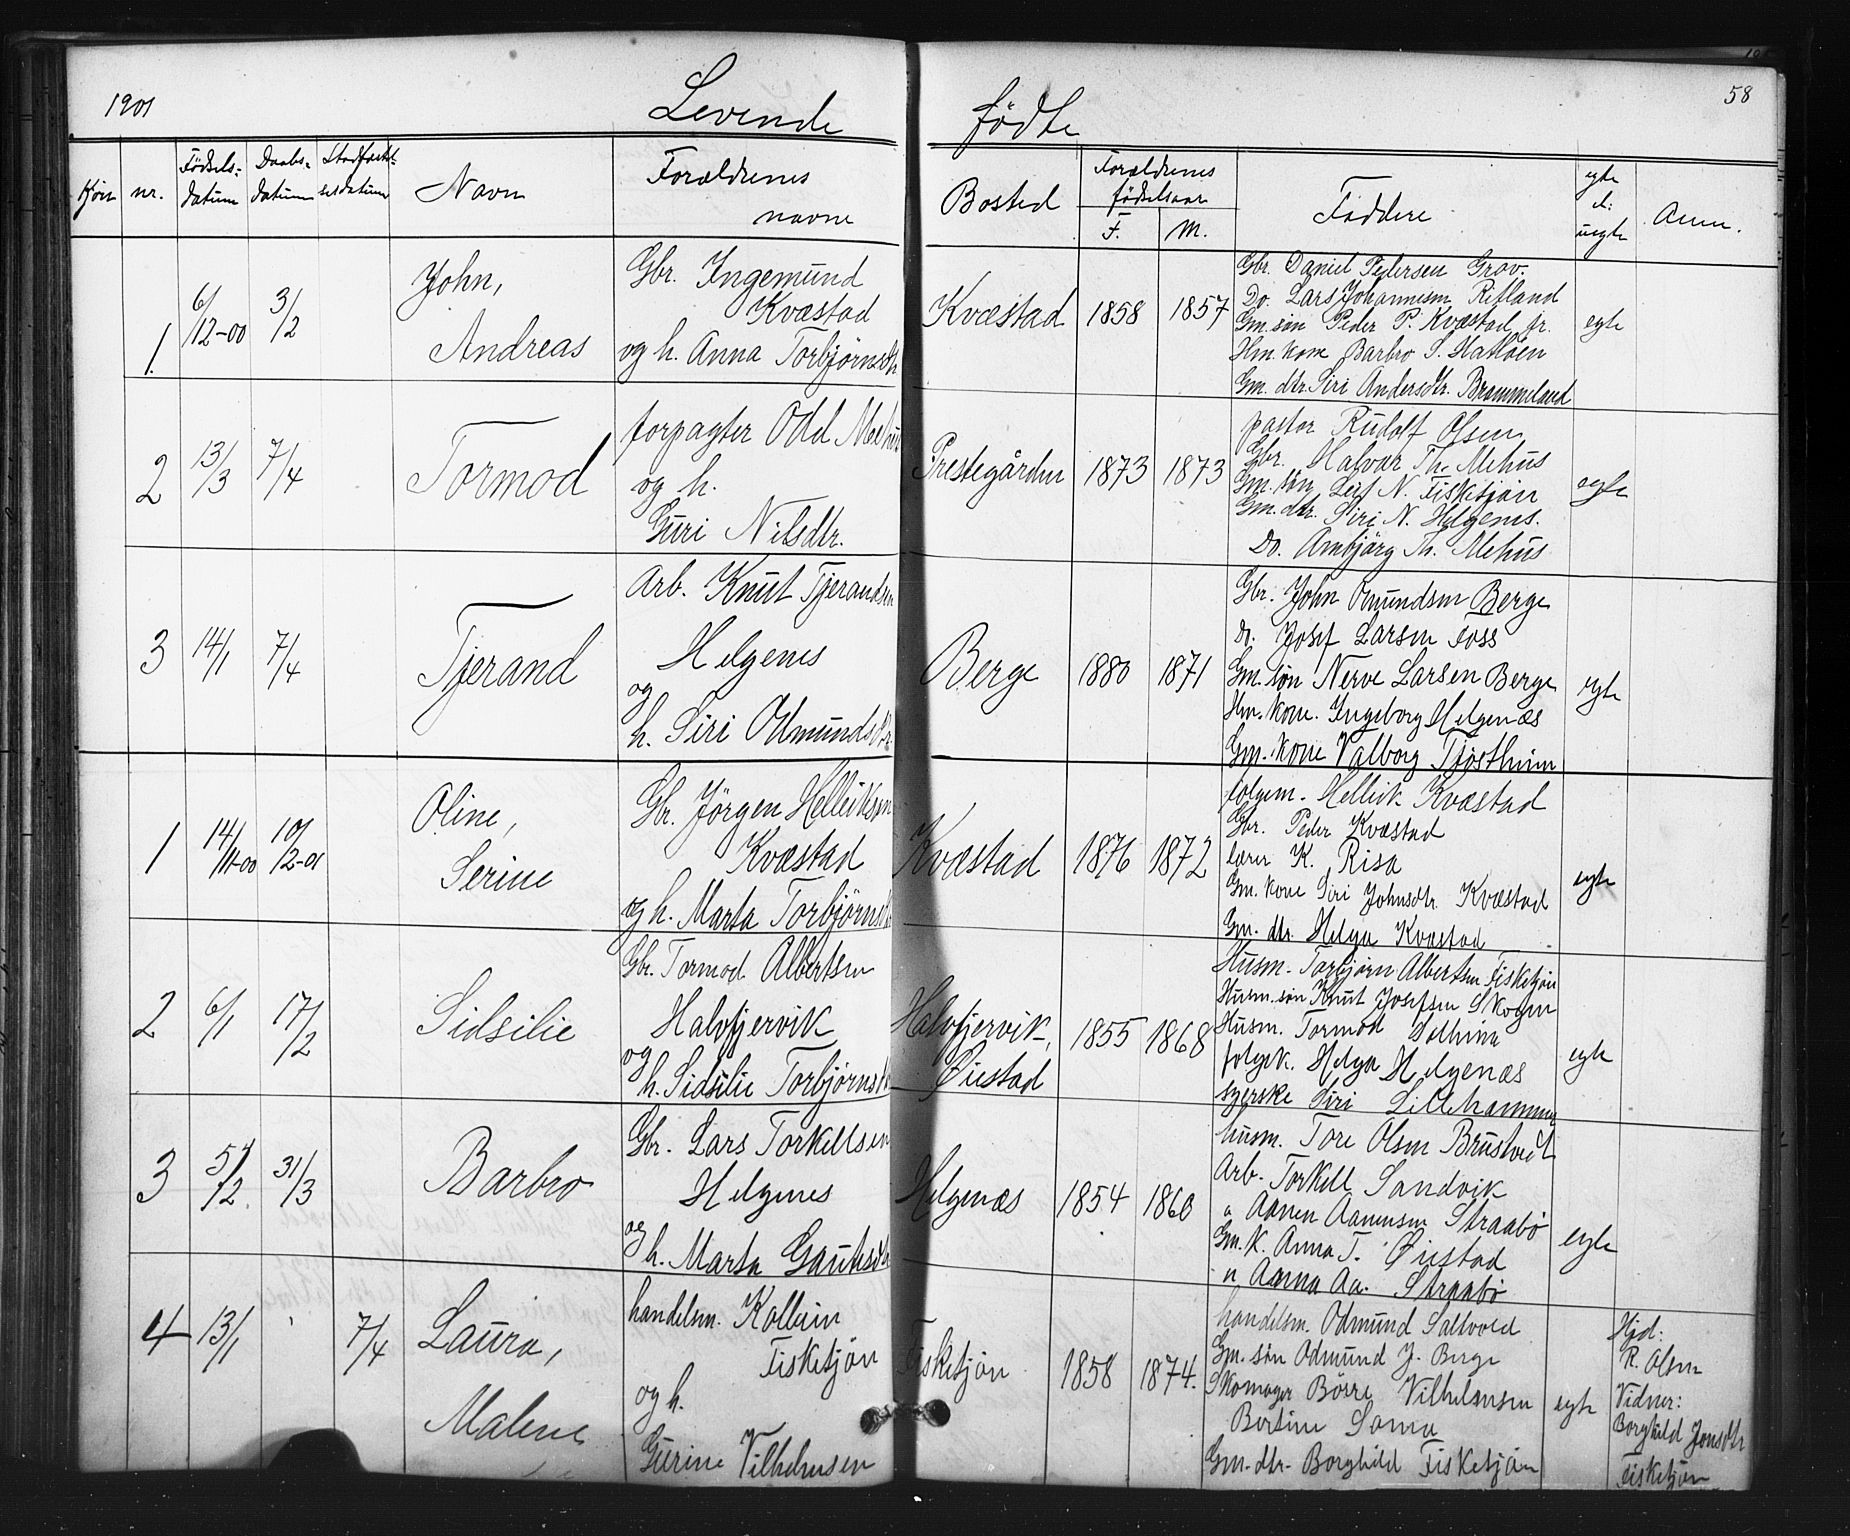 1901
Levende fødte
58
Kjön
nr.
Födsels-
datum
Daabs-
datum
Stadfæstel-
sesdatum
Navn
Forældrenes
navne
Bosted
Forældrenes
fødselsaar
F.
M.
Faddere
egte
el:
uegte
Anm.
1
6/12-00
3/2
John,
Andreas
Gbr. Ingemund
Kvæstad
og h. Anna Torbjørnsdtr
Kvæstad
1858
1857
Gbr. Daniel Pedersen Grov.
Do. Lars Johannesen Ritland
Gm. søn Peder P. Kvæstad jr.
Hm. kone Barbro S. Hatløen
Gm. dtr. Siri Andersdtr. Brommeland
egte
2
13/3
7/4
Tormod
forpagter Odd Mehus
og h.
Guri Nilsdtr.
Prestegården
1873
1873
pastor Rudolf Olsen
Gbr. Halvar Th. Mehus
Gm. søn Leif N. Fisketjön
Gm. dtr. Siri N. Helgenes.
Do. Ambjørg Th. Mehus
egte
3
14/1
7/4
Tjerand
Arb. Knut Tjerandsen
Helgenes
og
h. Siri Odmundsdtr
Berge
1880
1871
Gbr. John Omundsen Berge
Do. Josef Larsen Foss
Gm. søn Nerve Larsen Berge
Hm. kone. Ingeborg Helgenæs
Gm. kone Valborg Tjøstheim
egte
1
14/11-00
10/2-01
Oline,
Serine
Gbr. Jörgen Helliksen
Kvæstad
og h. Marta Torbjørnsdtr
Kvæstad
1876
1872
folgem. Hellik Kvæstad
Gbr. Peder Kvæstad
lærer K. Risa
Gm. kone Siri Johnsdtr. Kvæstad
Gm. dtr Helga Kvæstad
egte
2
6/1
17/2
Sidsilie
Gbr. Tormod Albertsen
Halvfjervik
og
h. Sidsilie Torbjørnsdtr
Halvfjervik,
Øiestad
1855
1868
Husm. Torbjørn Albertsen Fisketjön
Husm. søn Knut Josefsen Skogen
Husm. Tormod Solheim
folgek. Helga Helgenæs
syerske Siri Lillehammer
egte
3
5/2
31/3
Barbro
Gbr. Lars Torkellsen
Helgenes
og
h. Marta Gautesdtr
Helgenæs
1854
1860
husm. Tore Olsen Brustveit
Arb. Torkell Sandvik
" Aanen Aanensen Straabø
Gm. k. Anna T. Øiestad
" Anna Aa. Straabø
egte
4
13/1
7/4
Laura,
Malene
handelsm. Kolbein
Fisketjön
og h.
Gurine Vilhelmsen
Fisketjön
1858
1874.
handelsm. Odmund Saltvold
Gm. søn Odmund J. Berge
Skomager Børre Vilhelmsen
Bertine Soma
Gm. dtr. Borghild Fisketjön
egte
Hjd:
R. Olsen
Vidner:
Borghild Jonsdtr
Fisketjön